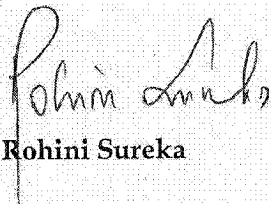 Rohini Sureka
Rohini Sureka